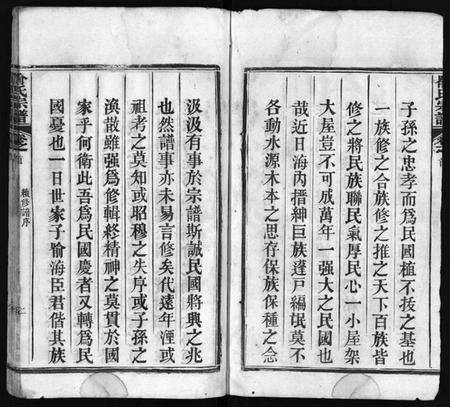 氏宗譜
子孫之忠孝而爲民國植不拔之基也
一族修之合族修之推之天下百族皆
修之將民族聯民氣厚民心一小屋架
大屋豈不可成萬年一强大之民國也
哉近日海內搢紳巨族蓬戸編氓莫不
各動水源木本之思存保族保種之念
汲汲有事於宗譜斯誠民國將興之兆
也然譜事亦未易言修矣代遠年湮或
祖考之莫知或昭穆之失序或子孫之
渙散雖强爲修輯終精神之莫貫於國
家乎何衛此吾爲民國慶者又轉爲民
國憂也一日世家子喻海臣君偕其族
氏宗譜
卷之首
續修譜序